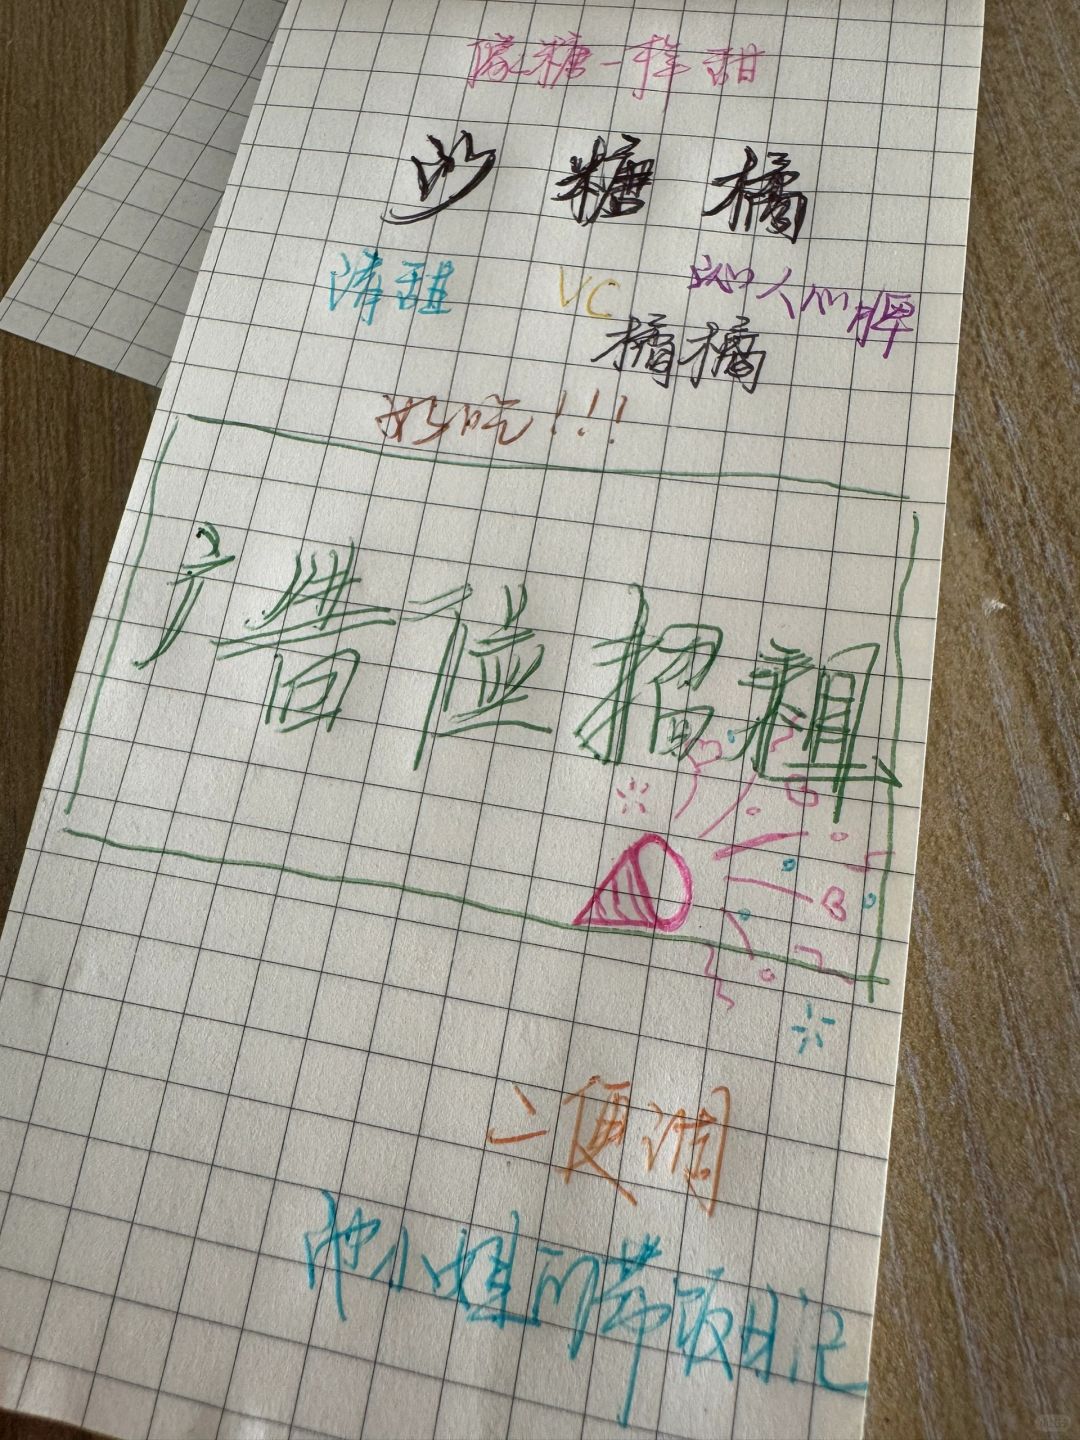 像糖一样甜
砂糖橘
清甜 VC 沁人心脾
橘橘
好吃!!!
广告位招租
小姐的带饭日记